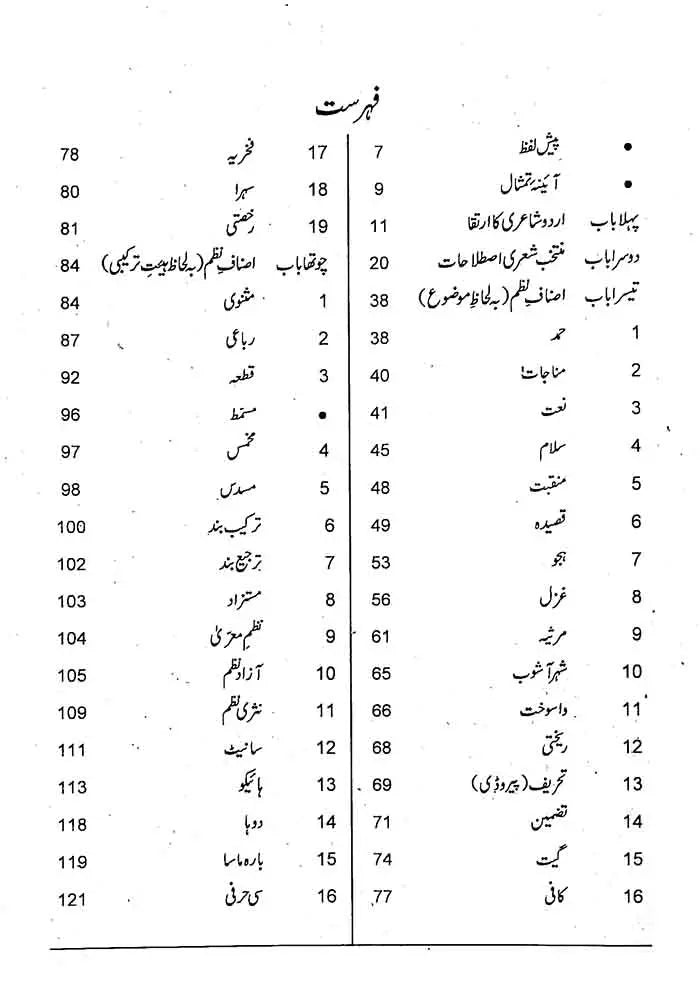 فہرست
• پیش لفظ 7
• آئینۂ تمثال 9
پہلا باب اردو شاعری کا ارتقا 11
دوسرا باب منتخب شعری اصطلاحات 20
تیسرا باب اصنافِ نظم (بہ لحاظِ موضوع) 38
1 حمد 38
2 مناجات 40
3 نعت 41
4 سلام 45
5 منقبت 48
6 قصیدہ 49
7 ہجو 53
8 غزل 56
9 مرثیہ 61
10 شہر آشوب 65
11 واسوخت 66
12 ریختی 68
13 تحریف (پیروڈی) 69
14 تضمین 71
15 گیت 74
16 کافی 77
17 فخریہ 78
18 سہرا 80
19 رخصتی 81
چوتھا باب اصنافِ نظم (بہ لحاظ ہیئتِ ترکیبی) 84
1 مثنوی 84
2 رباعی 87
3 قطعہ 92
• مسمّط 96
4 مخمس 97
5 مسدس 98
6 ترکیب بند 100
7 ترجیع بند 102
8 مستزاد 103
9 نظمِ معرّیٰ 104
10 آزاد نظم 105
11 نثری نظم 109
12 سانیٹ 111
13 ہائیکو 113
14 دوہا 118
15 بارہ ماسا 119
16 سی حرفی 121